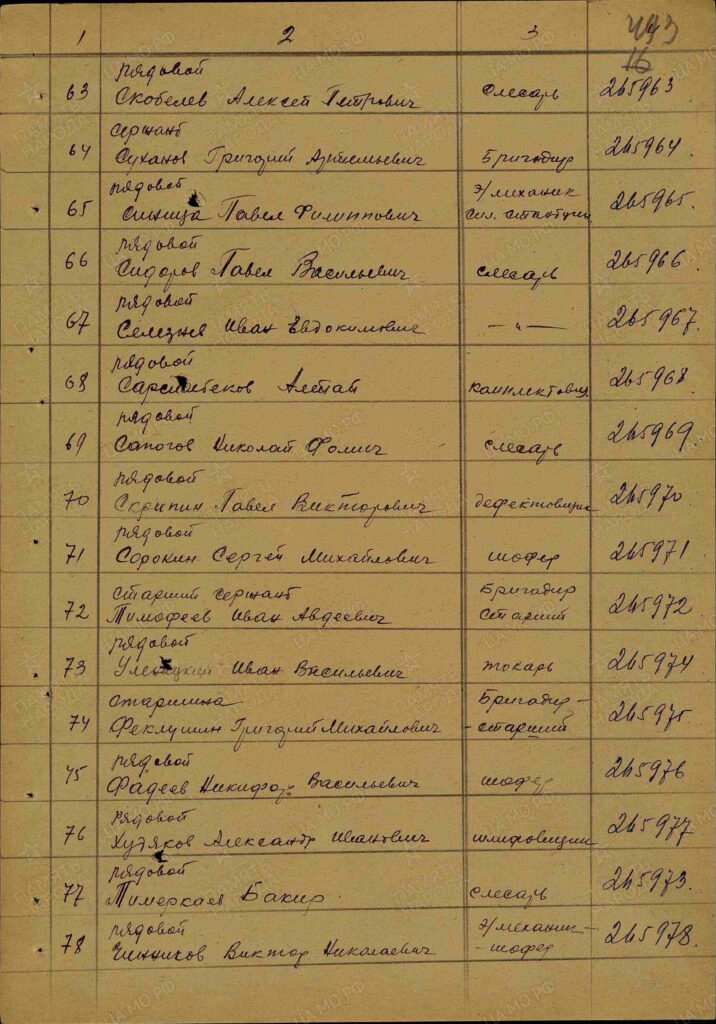 1 2 3 4
493
16
рядовой
63 Скобелев Алексей Петрович слесарь 265963
сержант
64 Суханов Григорий Артемьевич Бригадир 265964.
рядовой э/механик
65 Синица Павел Филиппович сил. станции 265965.
рядовой
66 Сидоров Павел Васильевич слесарь 265966.
рядовой
67 Селезнев Иван Евдокимович —"— 265967.
рядовой
68 Алтай комплектовщ. 265968
рядовой
69 Сапогов Николай Фомич слесарь 265969.
рядовой
70 Скрипин Павел Викторович дефектовщик 265970
рядовой
71 Сорокин Сергей Михайлович шофер 265971
старший сержант Бригадир
72 Тимофеев Иван Авдеевич старший 265972
рядовой
73 Иван Васильевич токарь 265974
старшина Бригадир-
74 Феклушин Григорий Михайлович -старший 265975
рядовой
75 Фадеев Никифор Васильевич шофер 265976
рядовой
76 Худяков Александр Иванович шлифовщик 265977
рядовой
77 Тимеркаев Бакир слесарь 265973.
рядовой э/механик-
78 Чинников Виктор Николаевич -шофер 265978.